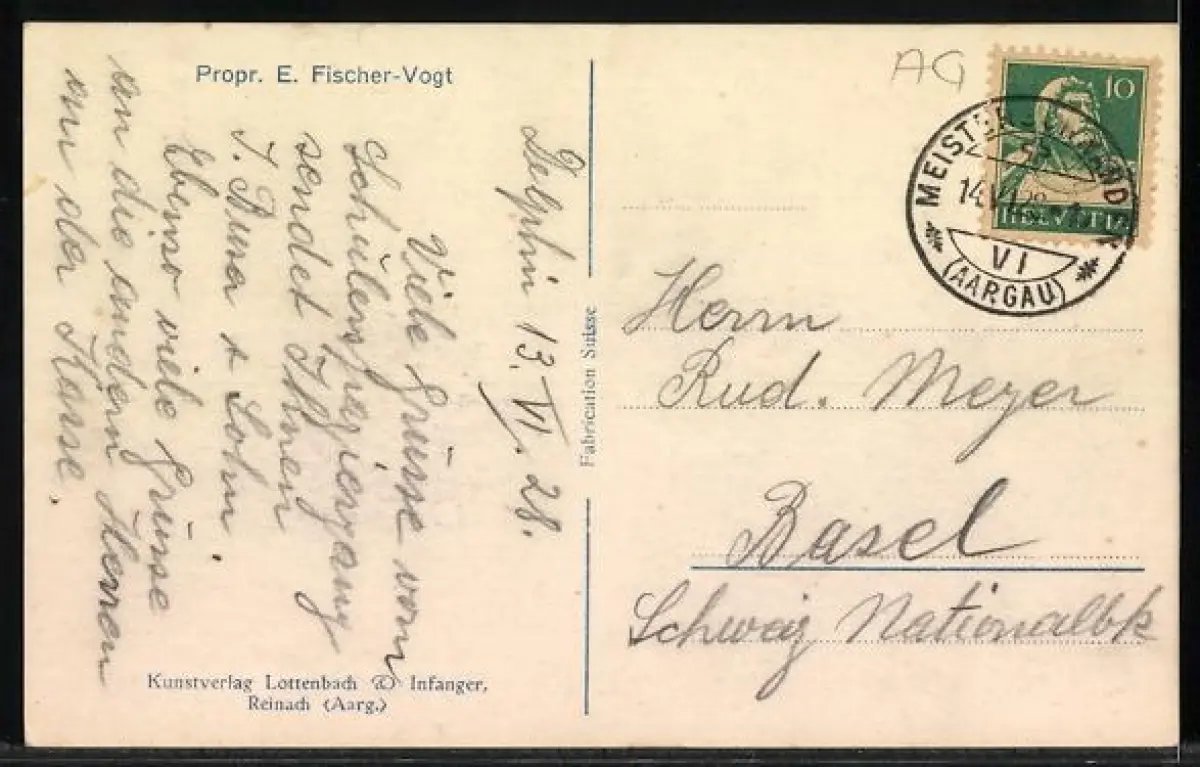 Propr. E. Fischer-Vogt
13. VI. 28.
Viele Grüsse vom
Schülerspaziergang
sendet Ihnen
J. & Sohn.
Ebenso viele Grüsse
an die andern Herren
an der Kasse.
Kunstverlag Lottenbach & Infanger,
Reinach (Aarg.)
Fabrication Suisse
AG
10
HELVETIA
MEISTERSCHWANDEN
14.VI.28
VI
(AARGAU)
Herrn
Rud. Meyer
Basel
Schweiz Nationalbk